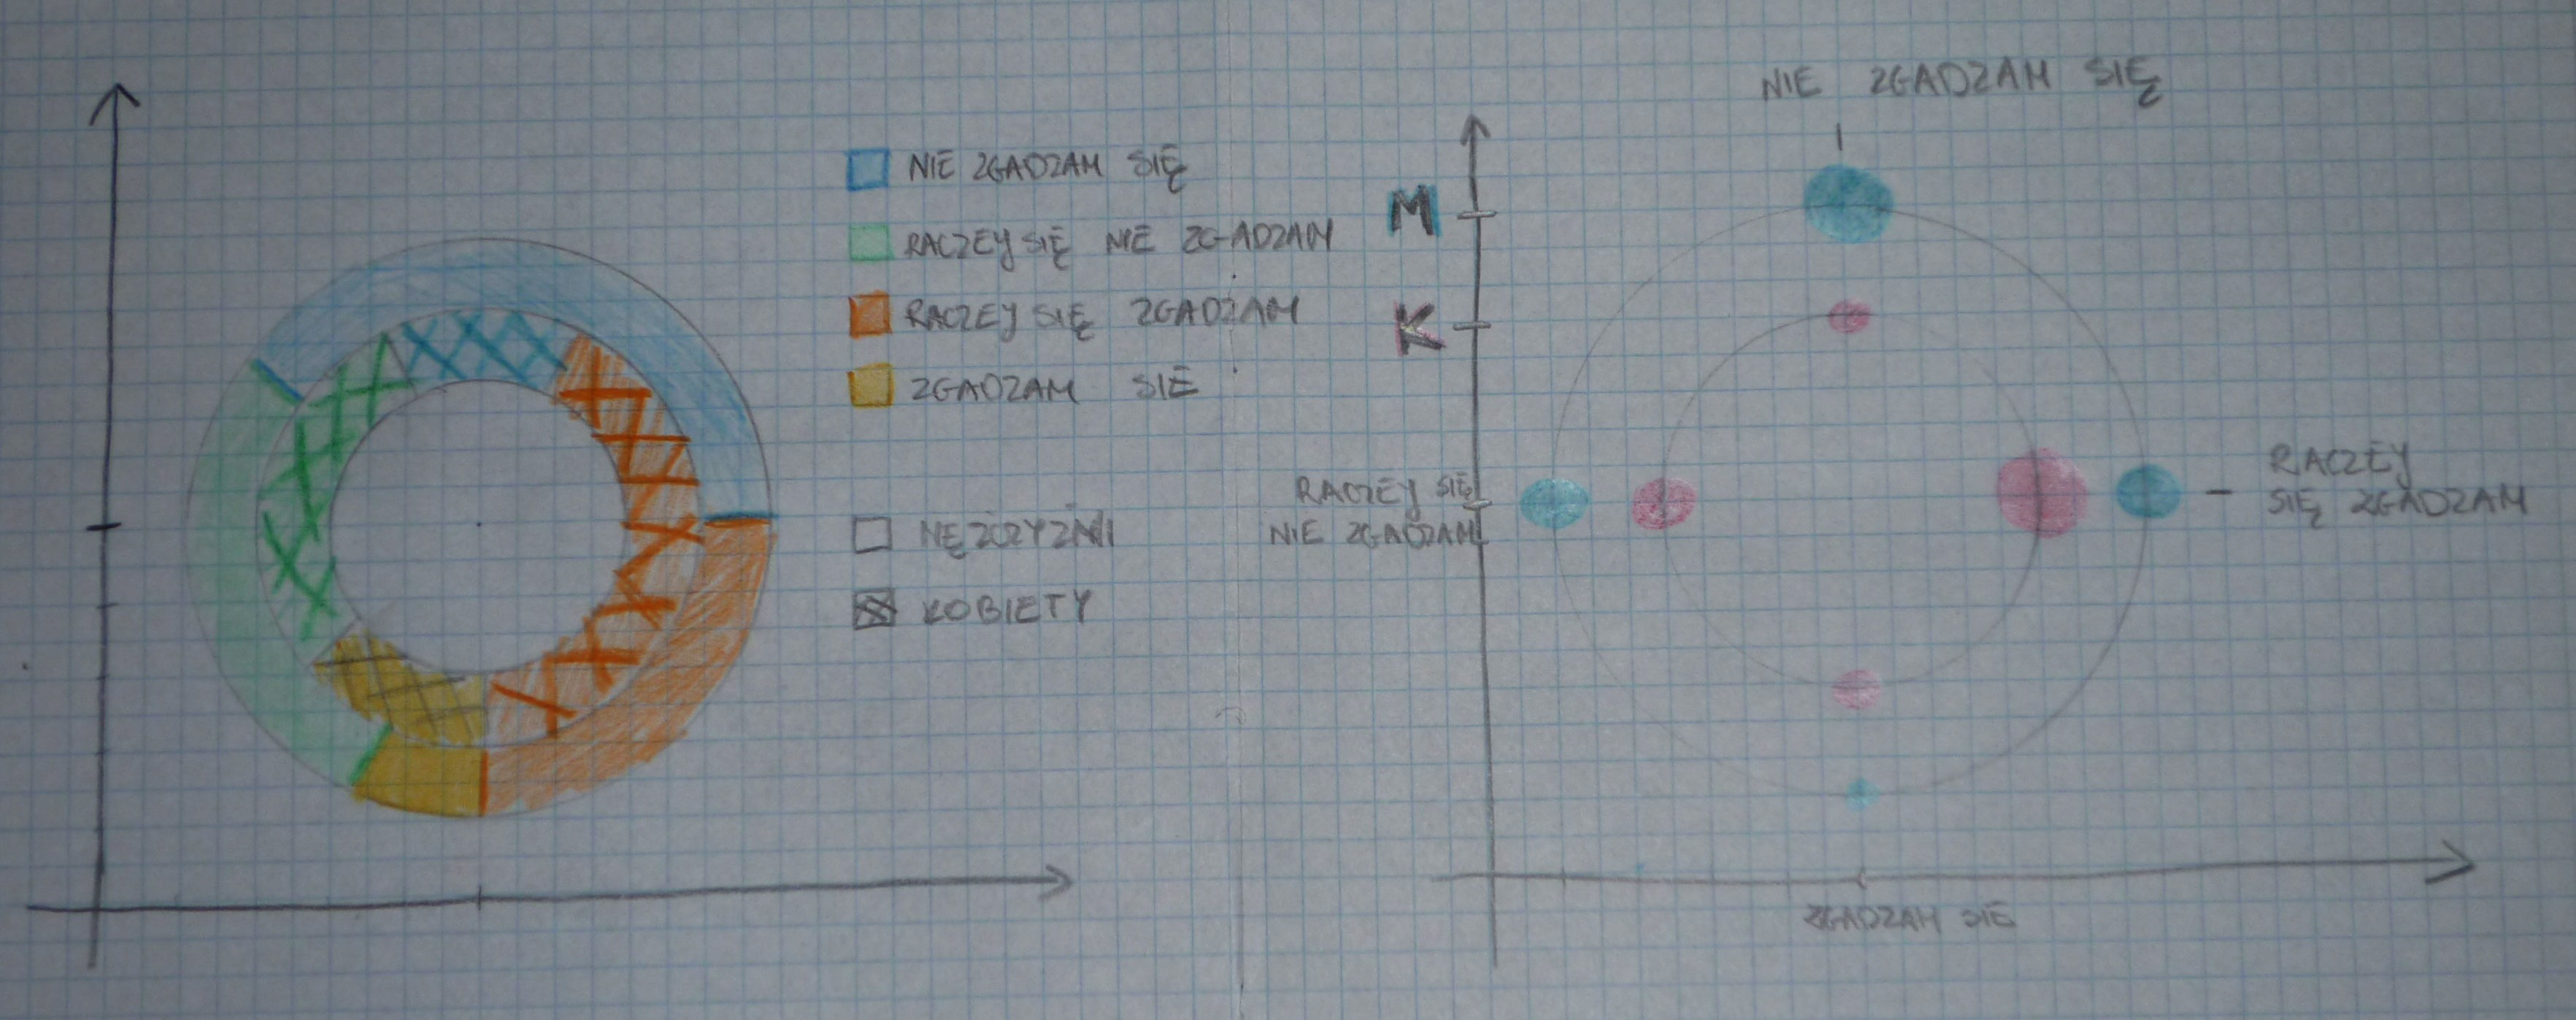 NIE ZGADZAM SIĘ
RACZEY SIĘ NIE ZGADZAM
RACZEY SIĘ ZGADZAM
ZGADZAM SIĘ
MĘŻCZYŹNI
KOBIETY
NIE ZGADZAM SIĘ
M
K
RACZEY SIĘ
NIE ZGADZAM
RACZEY
SIĘ ZGADZAM
ZGADZAM SIĘ